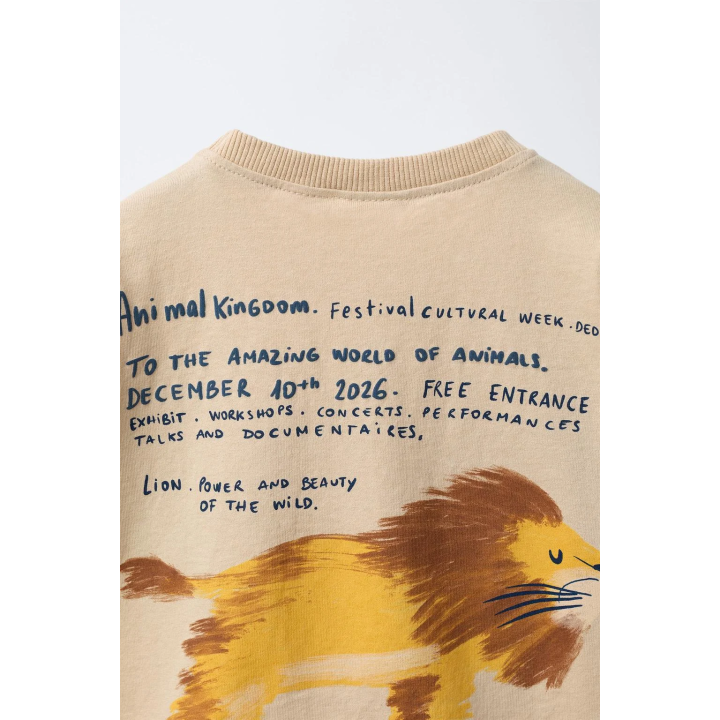 Animal Kingdom. Festival CULTURAL WEEK. DED
TO THE AMAZING WORLD OF ANIMALS.
DECEMBER 10th 2026. FREE ENTRANCE
EXHIBIT. WORKSHOPS. CONCERTS. PERFORMANCES
TALKS AND DOCUMENTAIRES.
LION. POWER AND BEAUTY
OF THE WILD.